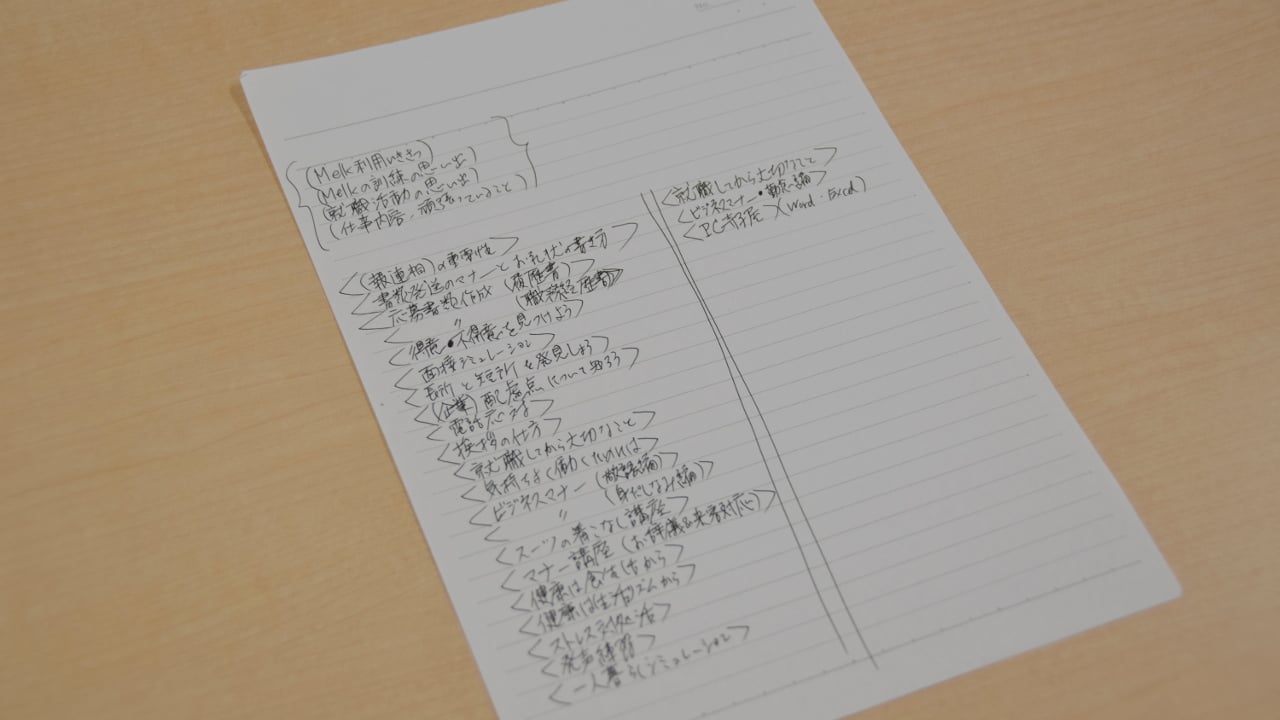 No.
(Melk利用いきさつ)
(Melkの訓練の思い出)
(就職活動の思い出)
(仕事内容、頑張っていること)
<(報連相)の重要性>
<書類発送のマナーとお礼状の書き方>
<応募書類作成 (履歴書)>
< 〃 (職務経歴書)>
<得意・不得意を見つけよう>
<面接シミュレーション>
<長所と短所を発見しよう>
<(企業)配慮点について知ろう>
<電話応対>
<挨拶の仕方>
<就職してから大切なこと>
<気持ちよく働くためには>
<ビジネスマナー (敬語編)>
< 〃 (身だしなみ編)>
<スーツの着こなし講座>
<マナー講座 (お辞儀&来客対応)>
<健康は食生活から>
<健康は生活リズムから>
<ストレス対処法>
<発声練習>
<一人暮らしシミュレーション>
<就職してから大切なこと>
<ビジネスマナー・勤怠編>
<PC寺子屋>(Word・Excel)